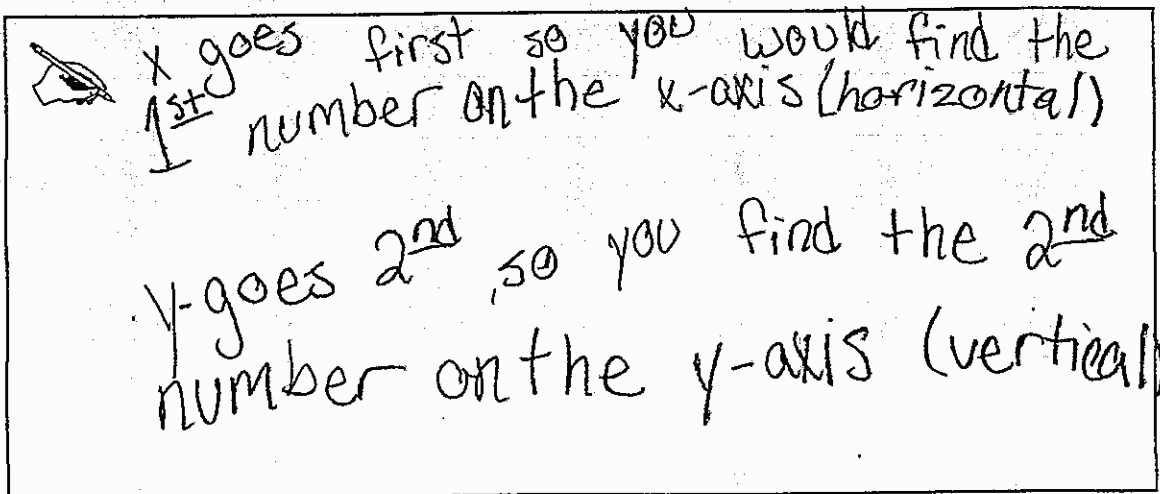 x goes first so you would find the
1st number on the x-axis (horizontal)
y-goes 2nd, so you find the 2nd
number on the y-axis (vertical)